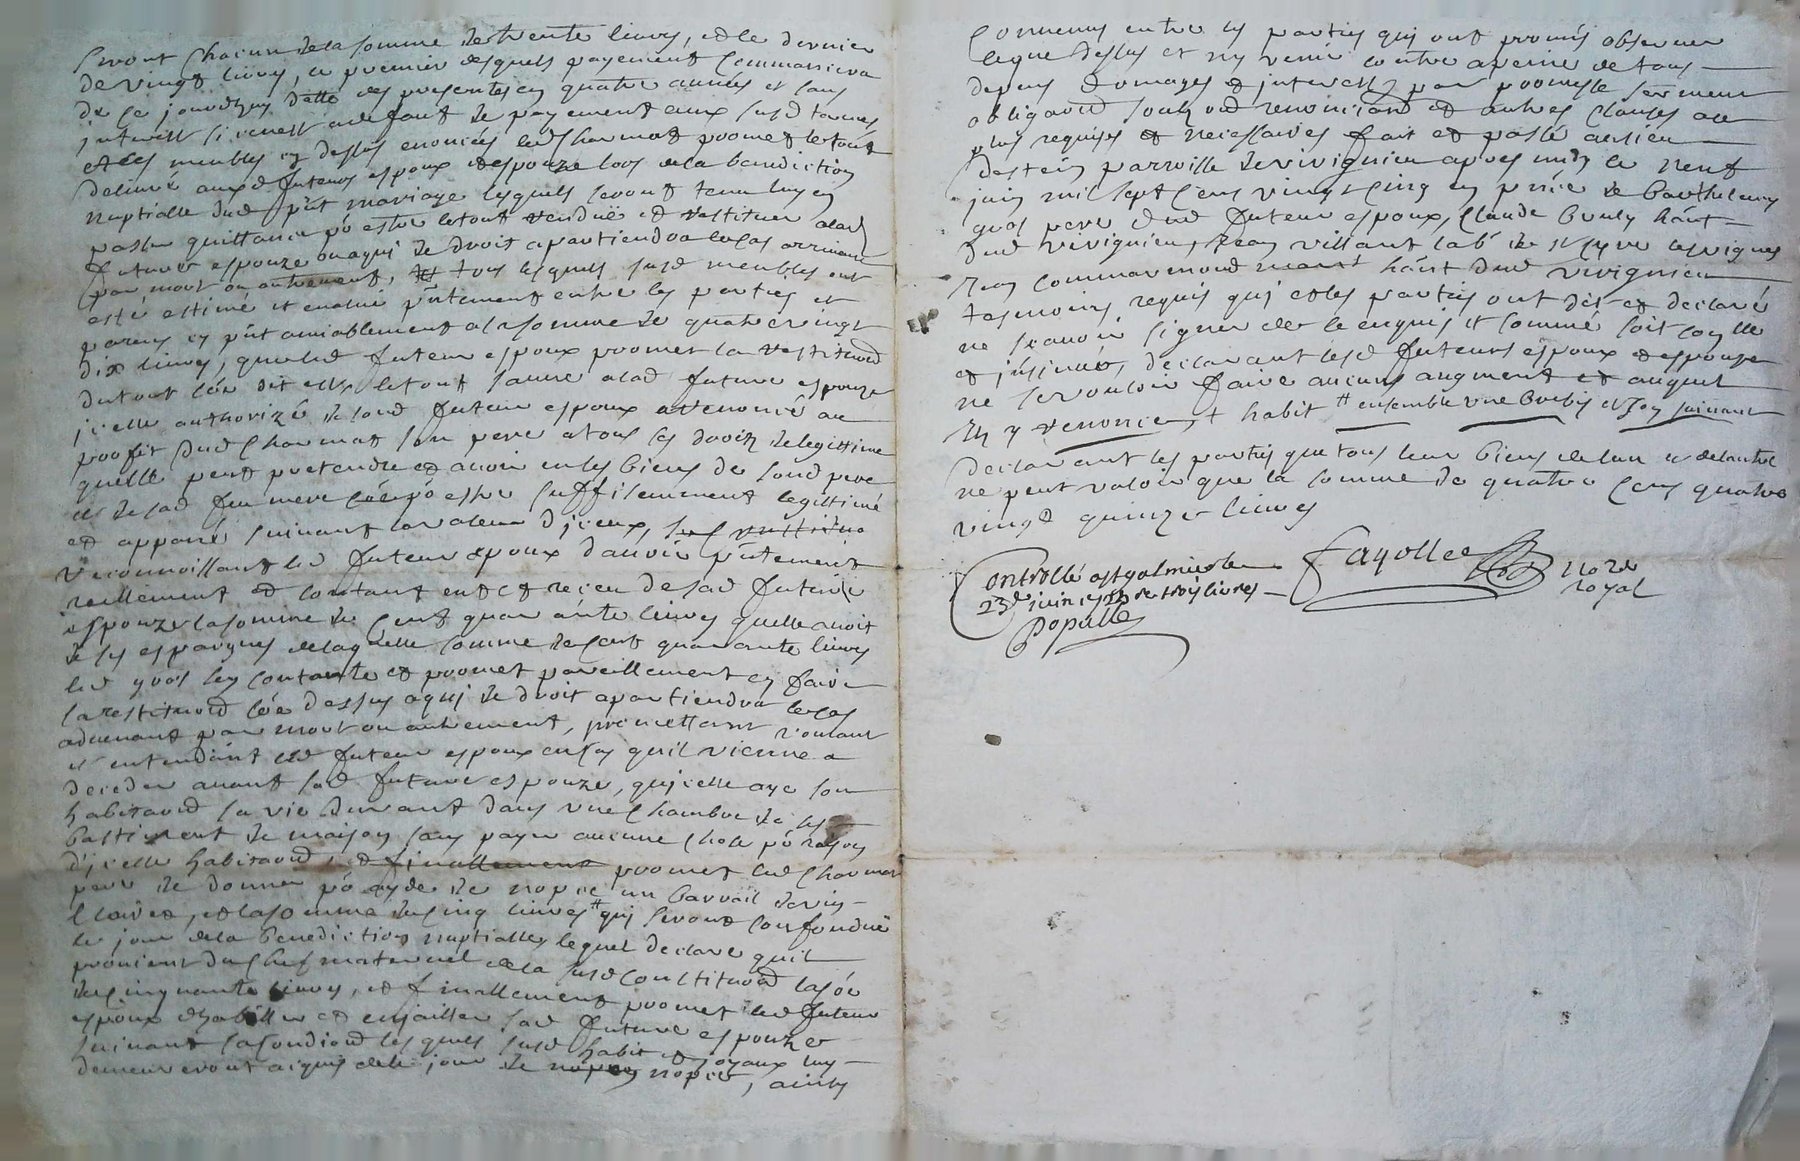 seront chacun de la somme de trente livres, et le dernier
de vingt livres, ce premier desquels payement commansera
de ce jourdhuy datte des presentes en quatre années et sans
interest si ce nest a deffaut de payement aux susd termes
et les meubles cy dessus enoncées led Charmat promet le tout
delivré auxd futeurs espoux et espouze lors de la benediction
nuptialle dud pnt mariage lesquels seront tenu luy en
passer quittance po estre le tout rendue et restituer alad
future espouze ou a qui de droit apartiendra le cas arrivant
par mort ou autrement, tous lesquels susd meubles ont
esté estimé et evalué pntement entre les parties et
parens cy pnt amiablement a la somme de quatre vingt
dix livres, que led futeur espoux promet la restituon
du tout coe dit est, le tout sauve a lad future espouze
jcelle authorizé de sond futeur espoux a renoncé au
profit dud Charmat son pere a tous ses droits de legittime
quelle peut pretendre et avoir en les biens de sond pere
et de sad feu mere coe po estre suffisemment legittimé
et apparé suivant la valeur djceux,
reconnoissant led futeur epoux davoir pntement
reellement et contant eut et reçeu de sad future
espouze la somme de cent quarante livres quelle avoit
de ses espargnes de laquelle somme de cent quarante livres
led gros sen contante et promet pareillement en faire
la restituon coe dessus a qui de droit apartiendra le cas
advenant par mort ou autrement, promettant voulant
et entendant led futeur espoux en cas quil vienne a
deceder avant sad future espouze, qujcelle aye son
habitaon sa vie durant dans une chambre de ses
battiment de maison sans payer aucune chose po raison
djcelle habitaon, et finallement promet led Charmat
pere de donner po ayde de nopce un barrail de vin
clairet, et la somme de cinq livres qui seront confondue
le jour de la benediction nuptialle, lequel declare quil
provient du chef maternel de la susd constituon la soe
de cinquante livres, et finallement promet led futeur
espoux dhabiller et enjoailler sad future espouze
suivant sa condion lesquels susd habit et joyaux luy
demeureront aquis des le jour de nopces, ainsy
convenus entre les parties qui ont promis observer
le que dessus et ny venir contre a peine de tous
depens domages et interests par promesse serment
obligaon soub. et renonciaon et autres clauses au
plus requises et necessaires fait et passé au lieu
destein parroisse de Virignieu apres midy le neuf
juin mil sept cens vingt cinq en pnce de Barthelemy
gros pere dud futeur espoux, Claude Bouly hant
dud Virignieu, Jean Villant lab. de St Cyre les vignes
Jean Commarmond mar hant dud Virignieu
tesmoins requis qui et les parties ont dit et declaré
ne scavoir signer de ce enquis et sommé soit controllé
et insinué, declarant lesd futeurs espoux et espouze
ne se vouloir faire aucuns augment et auquel
ils y renoncent habit ensemble une brebis et son suivant
declarant les parties que tous leur biens de lun et de lautre
ne peut valoir que la somme de quatre cens quatre
vingt quinze livres
Controllé a St galmier le
23e juin 1725 re trois livres
Populle
Fayolle
Nore
Royal